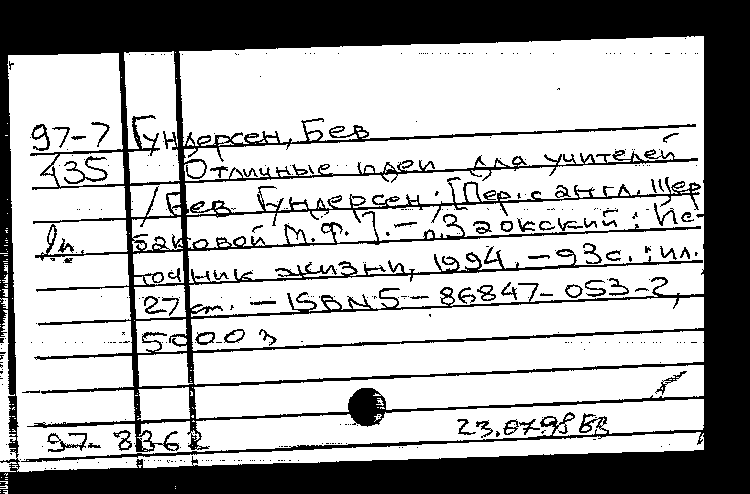 97-7 Гундерсен, Бев
435 Отличные идеи для учителей
/ Бев Гундерсен; [Пер. с англ. Щер
1п. баковой М.Ф.]. — п. Заокский : Ис-
точник жизни, 1994. — 93 с. : ил.
27 см. — ISBN 5-86847-053-2,
5000 э
97-8362 23.07.98 БВ